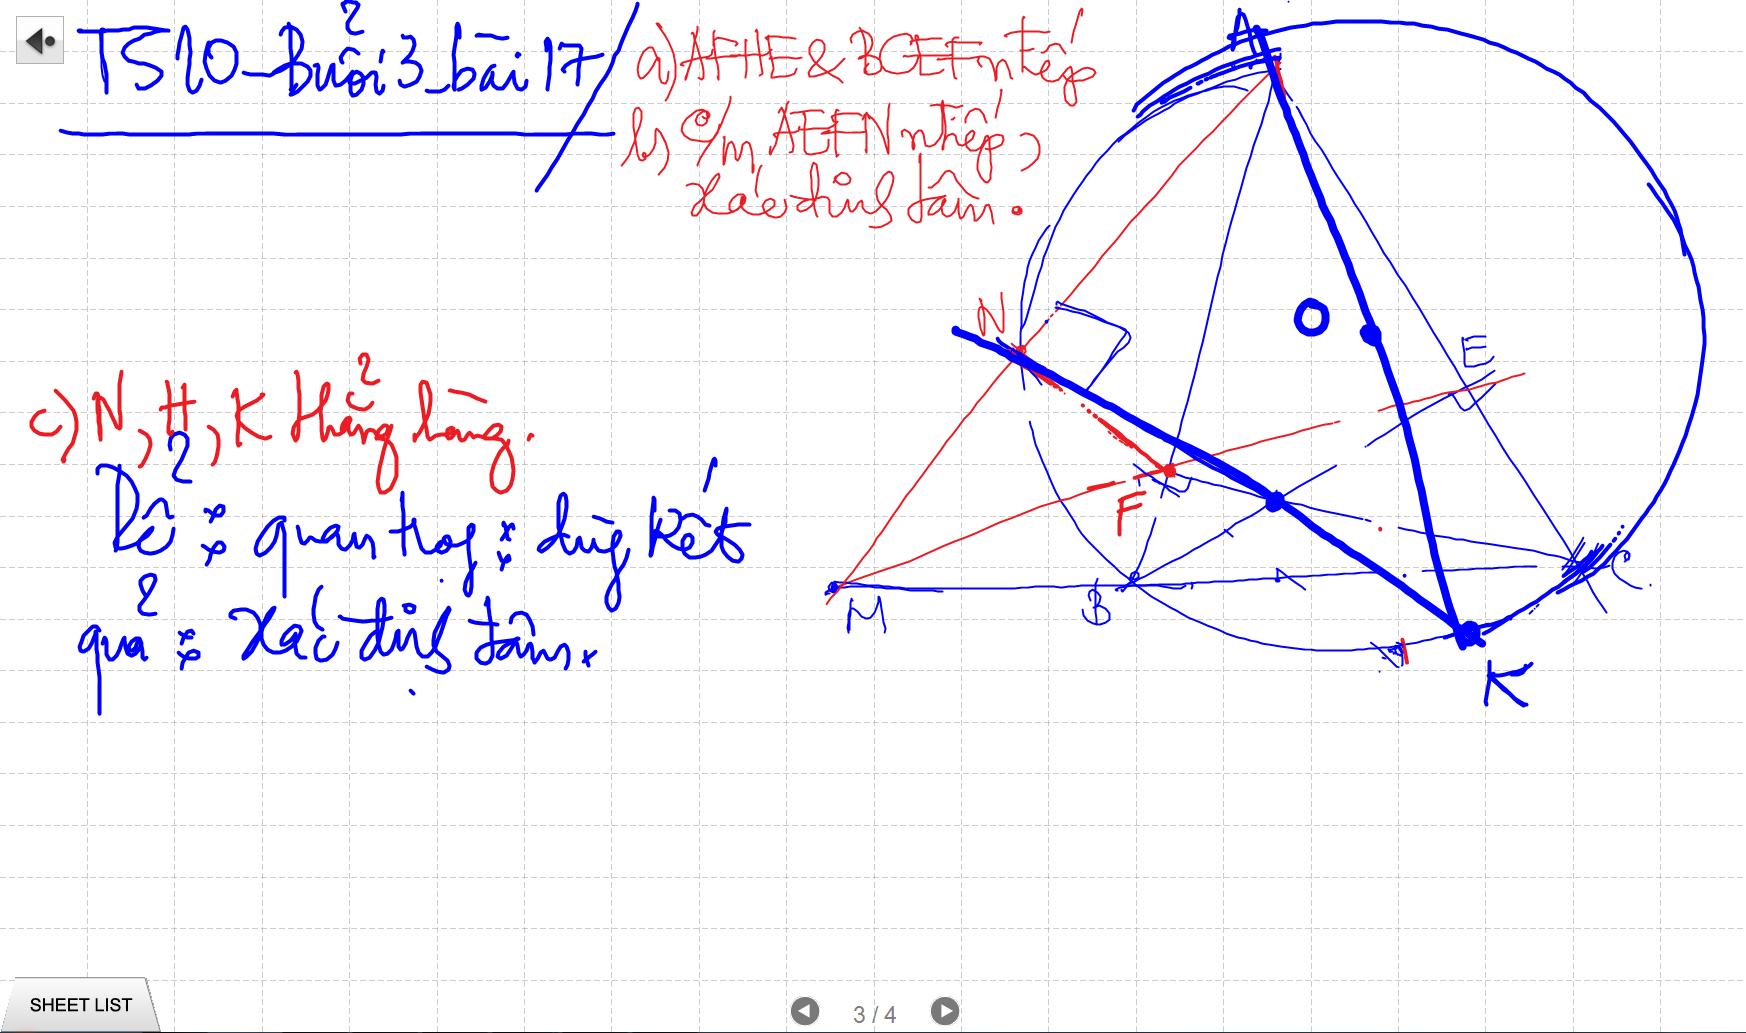 TS10_Buổi 3_bài 17
a) AFHE & BCEF ntiếp
b) C/m AEFN ntiếp,
xác định tâm.
c) N, H, K thẳng hàng.
Để : quan trọng : dùng kết
quả : xác định tâm.
A
N
O
E
F
M
B
C
K
SHEET LIST
3 / 4